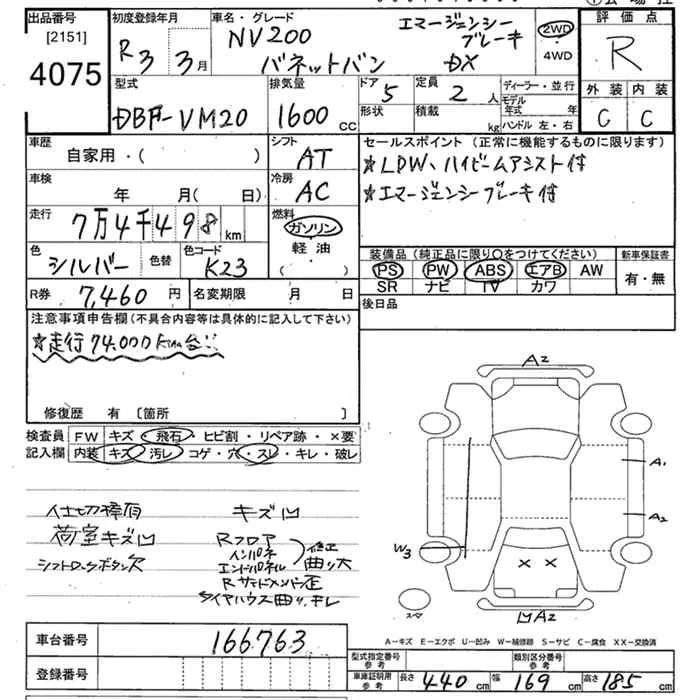 出品番号
[2151]
4075
初度登録年月
R3 3月
車名・グレード
NV200
バネットバン
エマージェンシー
ブレーキ
DX
2WD
4WD
評価点
R
外装 内装
C C
型式
DBF-VM20
排気量
1600 cc
ドア 5
形状
定員 2 人
積載 kg
ディーラー・並行
モデル
年式 年
ハンドル 左・右
車歴
自家用・( )
シフト
AT
車検
年 月 ( 日)
冷房
AC
走行
7万4千498 km
燃料
ガソリン
軽油
( )
色
シルバー
色替
色コード
K23
R券 7,460 円
名変期限 月 日
セールスポイント (正常に機能するものに限ります)
☆LDW、ハイビームアシスト付
☆エマージェンシーブレーキ付
装備品 (純正品に限り○をつけてください)
PS PW ABS エアB AW
SR ナビ TV カワ
新車保証書
有・無
後日品
注意事項申告欄 (不具合内容等は具体的に記入して下さい)
☆走行74.000km台!!
修復歴 有 [箇所 ]
検査員
記入欄
FW キズ・飛石・ヒビ割・リペア跡・×要
内装 キズ・汚レ・コゲ・穴・スレ・キレ・破レ
仕切棒有
荷室キズ凹
シフトロックボタン欠
キズ凹
Rフロア
インパネ
エンドパネル
修正
曲リ大
Rサイドメンバー歪
タイヤハウス曲リ、キレ
A2
A1
A2
W3
× ×
スペア
凹A2
A-キズ E-エクボ U-凹み W-補修跡 S-サビ C-腐食 XX-交換済
車台番号
166763
登録番号
型式指定番号
参考
類別区分番号
参考
車庫証明用
参考
長さ 440 cm
幅 169 cm
高さ 185 cm